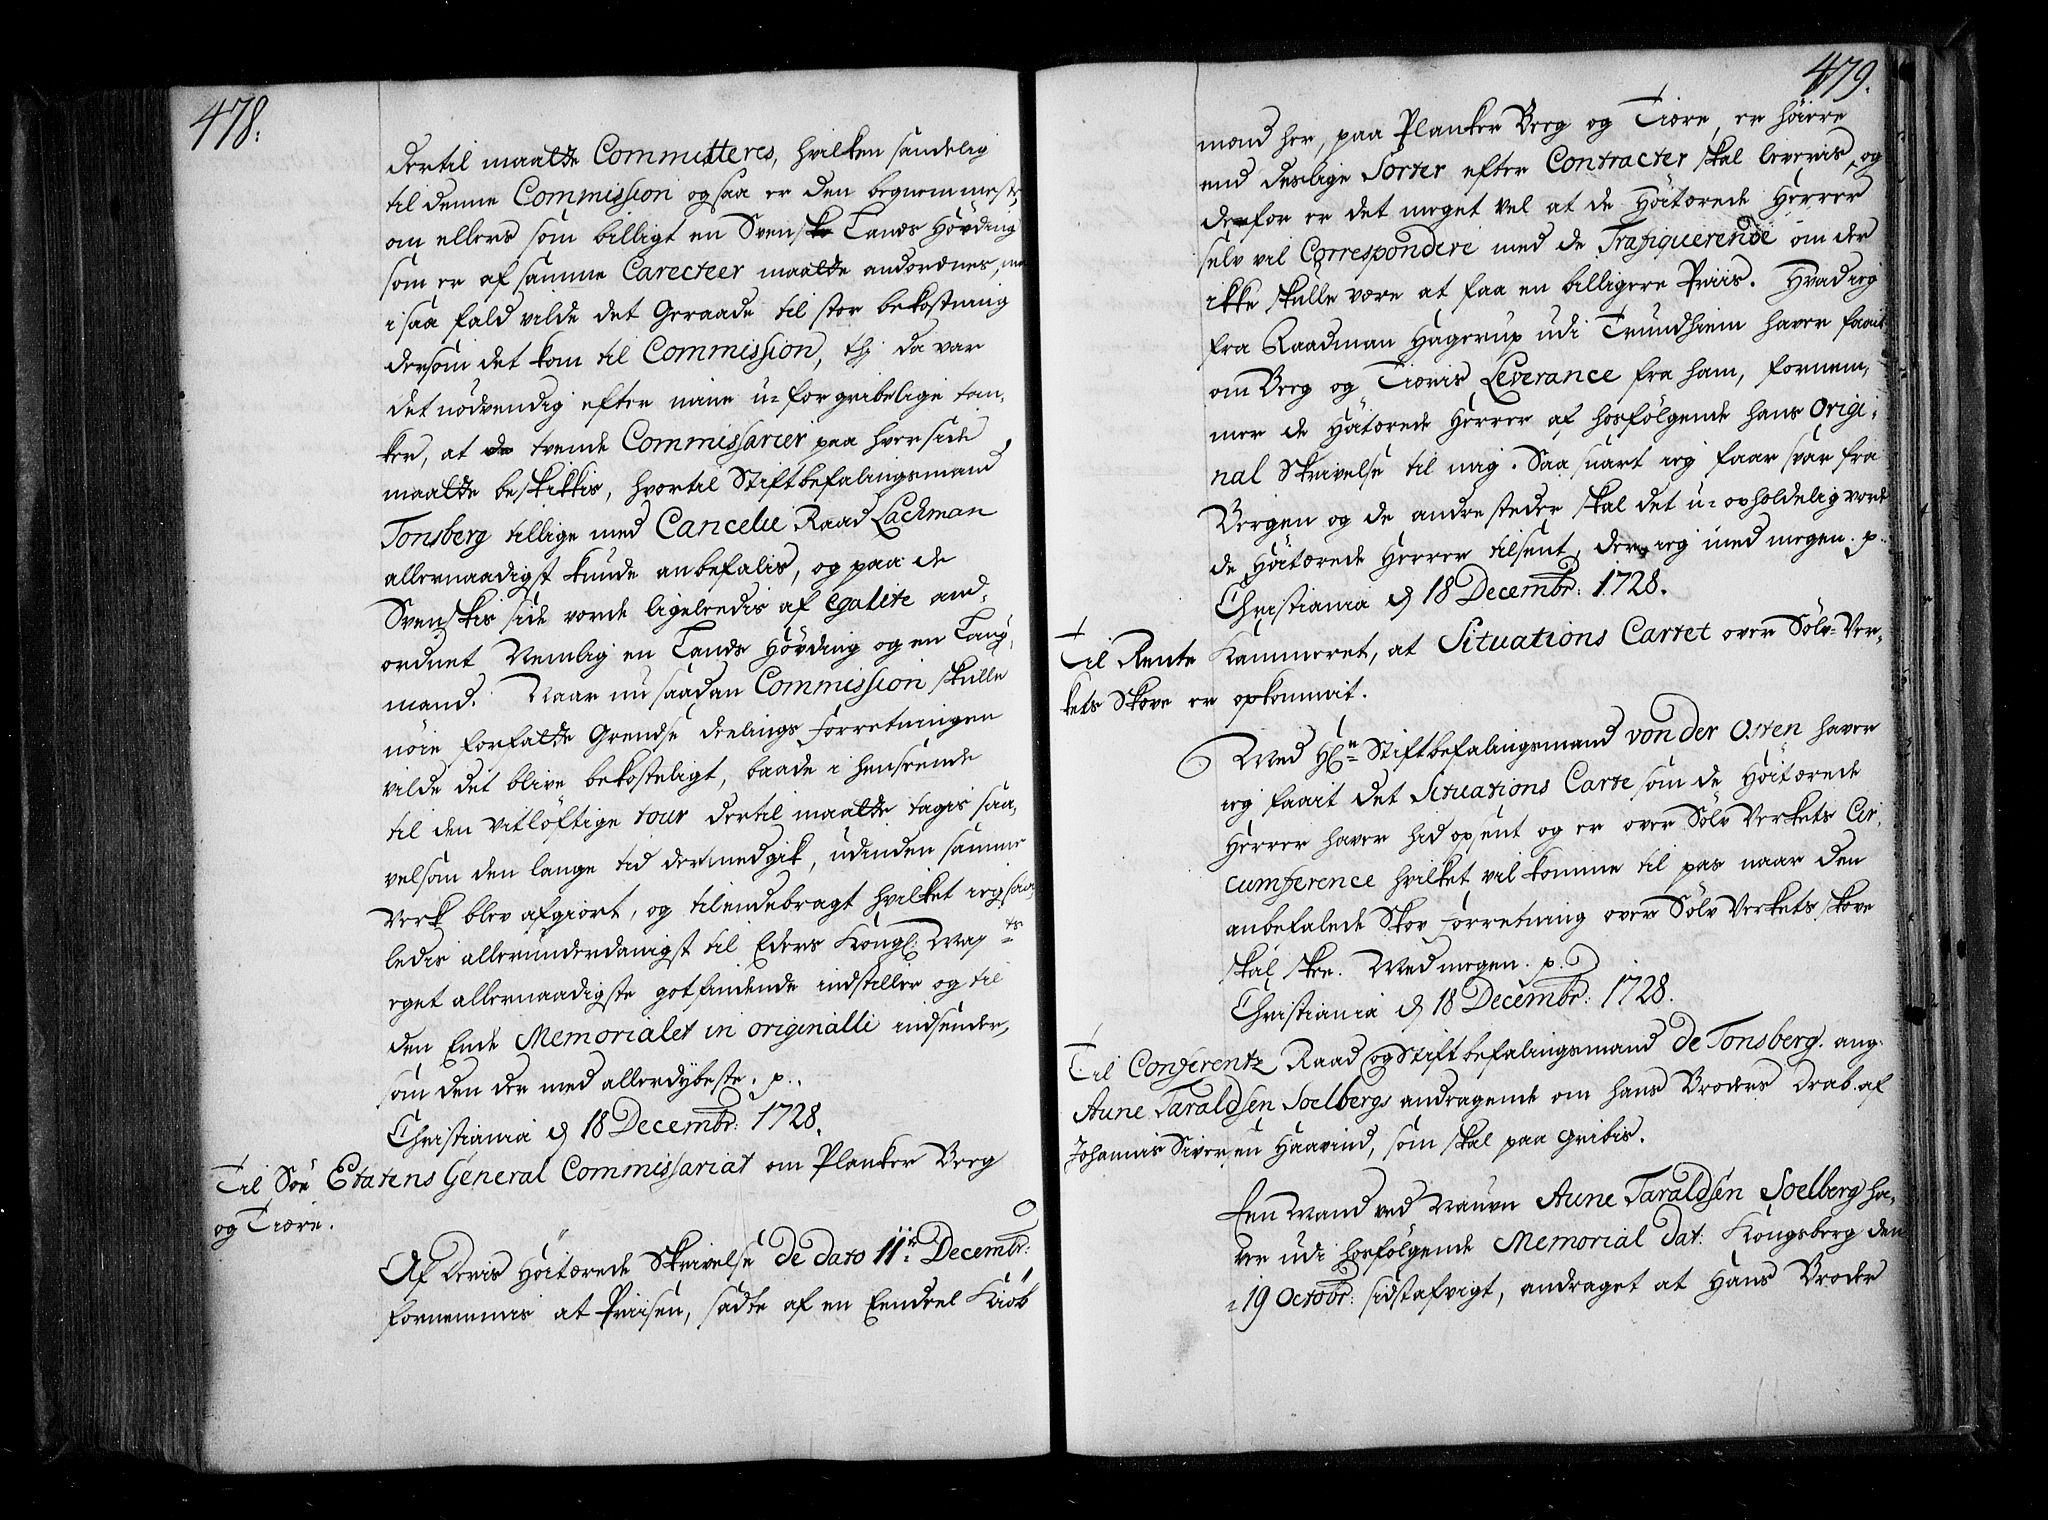 478.
dertil maatte Committeres, hvilken sandelig
til denne Commission ogsaa er den beqvemmeste,
om ellers som billigt en Svenske Lands Hövding
som er af samme Carecteer maatte andordnes, men
i saa fald vilde det Geraade til stor bekostning
dersom det kom til Commission, thj da var
det nödvendig efter mine u-forgribelige tan,
ker, at de tvende Commissarier paa hver side
maatte beskikkis, hvortil Stiftbefalingsmand
Tonsberg tillige med Cancelie Raad Lachman
allernaadigst kunde anbefalis, og paa de
Svenskis side vorde ligeledis af egalite and,
ordnet Nemlig en Lands Hövding og en Laug,
mand. Naar nu saadan Commission skulle
nöie forfatte Grendse deelings Forretningen
vilde det blive bekosteligt, baade i henseende
til den vitlöftige tour dertil maatte tagis saa,
velsom den lange tid dermedgik, udinden samme
Verk blev afgiort, og tilendebragt hvilket ieg saa,
ledis allerunderdanigst til Eders Kongl: May:ts
eget allernaadigste gotfindende indstiller og til
den Ende Memorialet in originalli indsender,
som den der med allerdybeste. p.
Christiania d 18 Decembr: 1728.
Til Söe Etatens General Commissariat om Planker Beeg
og Tiære.
Af Deris Höitærede Skrivelse de dato 11te Decembr:
fornemmis at Priisen, sadte af en Eendeel Kiöb
479.
mænd her, paa Planker Beeg og Tiære, er höiere
end deslige Sorter efter Contracter skal leveris, og
derfor er det meget vel at de Höitærede Herrer
selv vil Correspondere med de Trafiquerende om der
ikke skulle være at faa en billigere Priis. Hvad ieg
fra Raadmand Hagerup udi Trundhiem haver faait
om Beeg og Tiæris Leverance fra ham, fornem,
mer de Höitærede Herrer af hosfölgende hans Origi,
nal Skrivelse til mig. Saa snart ieg faar svar fra
Bergen og de andre steder skal det u-opholdelig vorde
de Höitærede Herrer tilsent, der ieg med megen. p.
Christiania d 18 Decembr: 1728.
Til Rente Kammeret, at Situations Cartet over Sölv-Ver,
kets Skove er opkommit.
Med Hr: Stiftbefalingsmand von der Osten haver
ieg faait det Situations Carte som de Höitærede
Herrer haver hid opsent og er over Sölv Verkets Cir,
cumference hvilket vil komme til pas naar den
anbefalede Skov Forretning over Sölv Verkets skove
skal skee. Med megen. p.
Christiania d 18 Decembr: 1728.
Til Conferentz Raad og Stiftbefalingsmand de Tonsberg. ang:
Aune Taraldsen Soelbergs andragende om hans Broders Drab. af
Johannis Siversen Haavind, som skal paa Gribis.
Een Mand ved Navn Aune Taraldsen Soelberg ha,
ver udi hosfölgende Memorial Dat: Kongsberg den
19 Octobr: sidstafvigt, andraget at Hans Broder